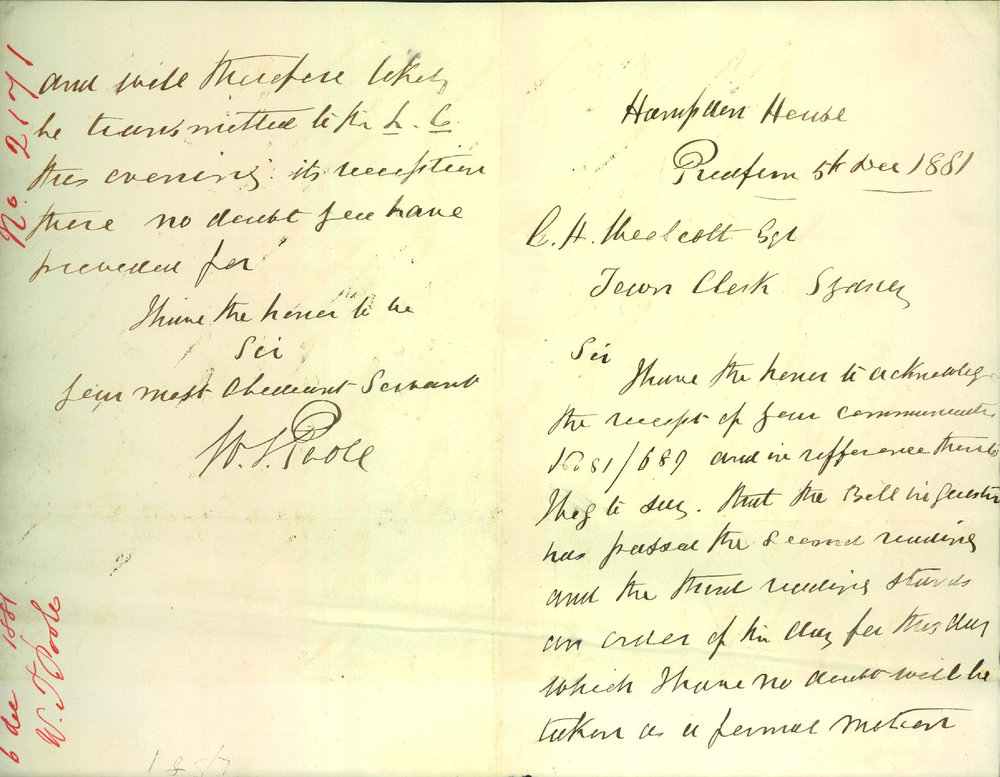 Hampden House
Redfern 5th Dec 1881
C. H. Woolcott Esqr
Town Clerk Sydney
Sir
I have the honor to acknowledge
the receipt of your communicatn
No 81/689 and in refference thereto
I beg to say. that the Bill in question
has passed the second reading
and the third reading stands
an order of the day for this day
which I have no doubt will be
taken as a formal motion
and will therefore likely
be transmitted to the L. C.
this evening. its reception
there no doubt you have
provided for
I have the honor to be
Sir
your most Obedient Servant
W. T. Poole
No 2171
6 dec 1881
W. T. Poole